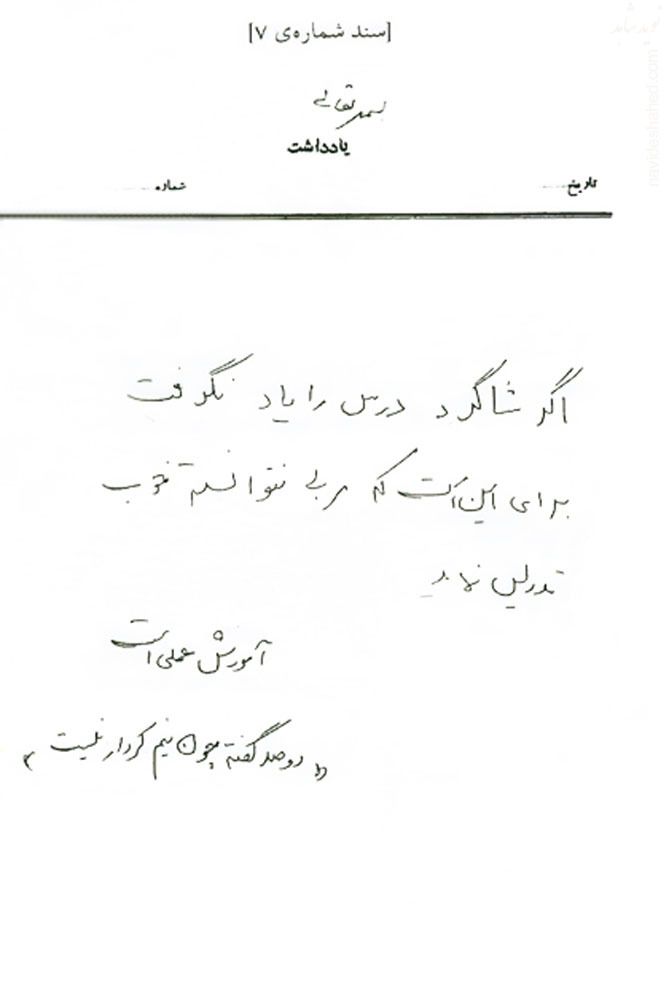 [سند شماره‌ی ۷]
بسمه تعالی
یادداشت
تاریخ
شماره
اگر شاگرد درس را یاد نگرفت
برای این است که مربی نتوانسته خوب
تدریس نماید
آموزش عملی است
«دو صد گفته چون نیم کردار نیست»
نوید شاهد
navideshahed.com